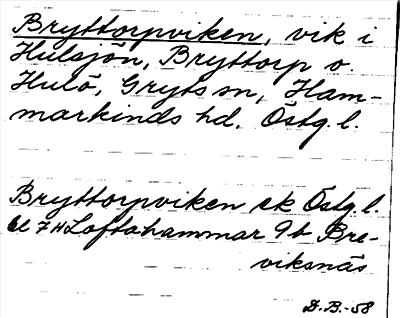 Bryttorpviken, vik i
Hulsjön, Bryttorp o.
Hulö, Gryts sn, Ham-
markinds hd. Östg. l.
Bryttorpviken ek Östg. l.
bl 7H Loftahammar 9b Bre-
viksnäs
D.B.-58